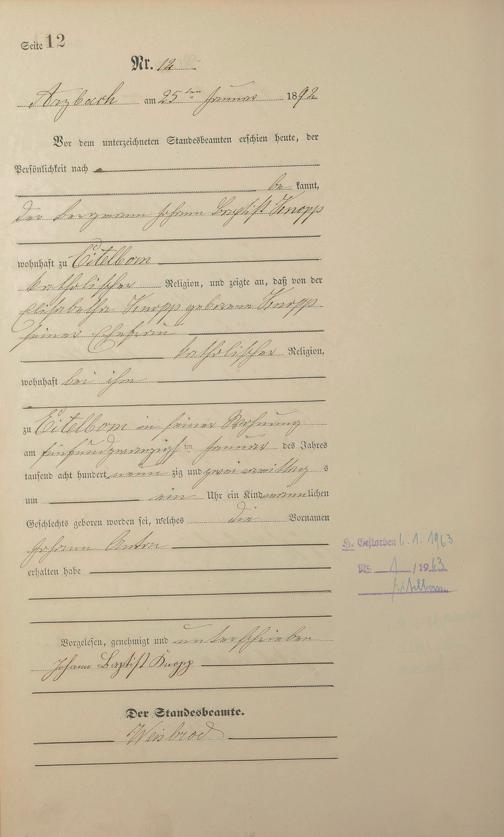 Seite 12
Nr. 12
Arzbach am 25ten Januar 1892
Vor dem unterzeichneten Standesbeamten erschien heute, der
Persönlichkeit nach
be kannt,
der Bergmann Johann Baptist Knopp
wohnhaft zu Eitelborn
katholischer Religion, und zeigte an, daß von der
Elisabetha Knopp geborene Knopp
seiner Ehefrau
katholischer Religion,
wohnhaft bei ihm
zu Eitelborn in seiner Wohnung
am fünfundzwanzigsten Januar des Jahres
tausend acht hundert neun zig und zwei Vormittags
um ein Uhr ein Kind männlichen
Geschlechts geboren worden sei, welches die Vornamen
Johann Anton
erhalten habe
Vorgelesen, genehmigt und unterschrieben
Johann Baptist Knopp
Der Standesbeamte.
Weisbrod
Gestorben 6.1.1963
Nr. 1/1963
Eitelborn